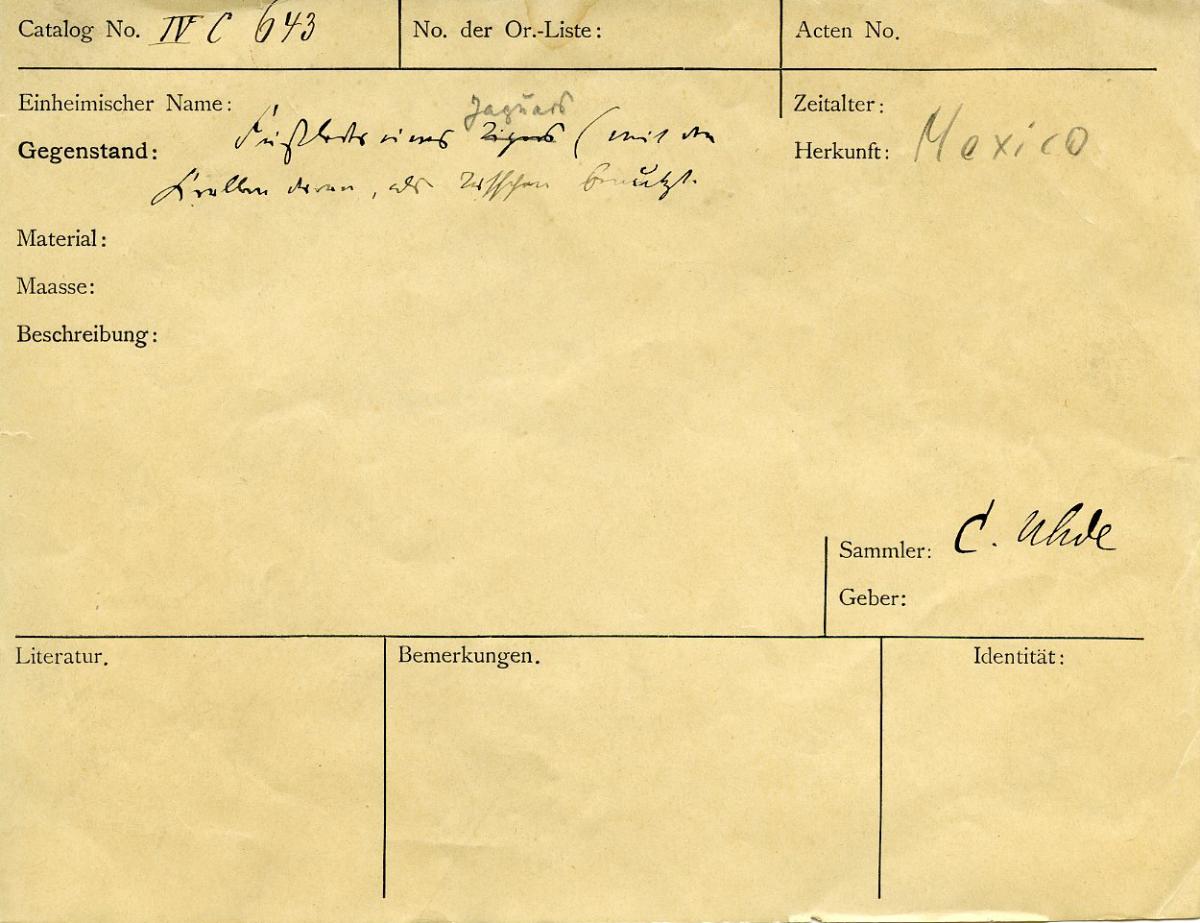 Catalog No. IV C 643
No. der Or.-Liste:
Acten No.
Einheimischer Name:
Jaguars
Zeitalter:
Gegenstand: eines Tigers (mit den
Krallen daran, als benutzt.
Herkunft: Mexico
Material:
Maasse:
Beschreibung:
Sammler: C. Uhde
Geber:
Literatur.
Bemerkungen.
Identität: